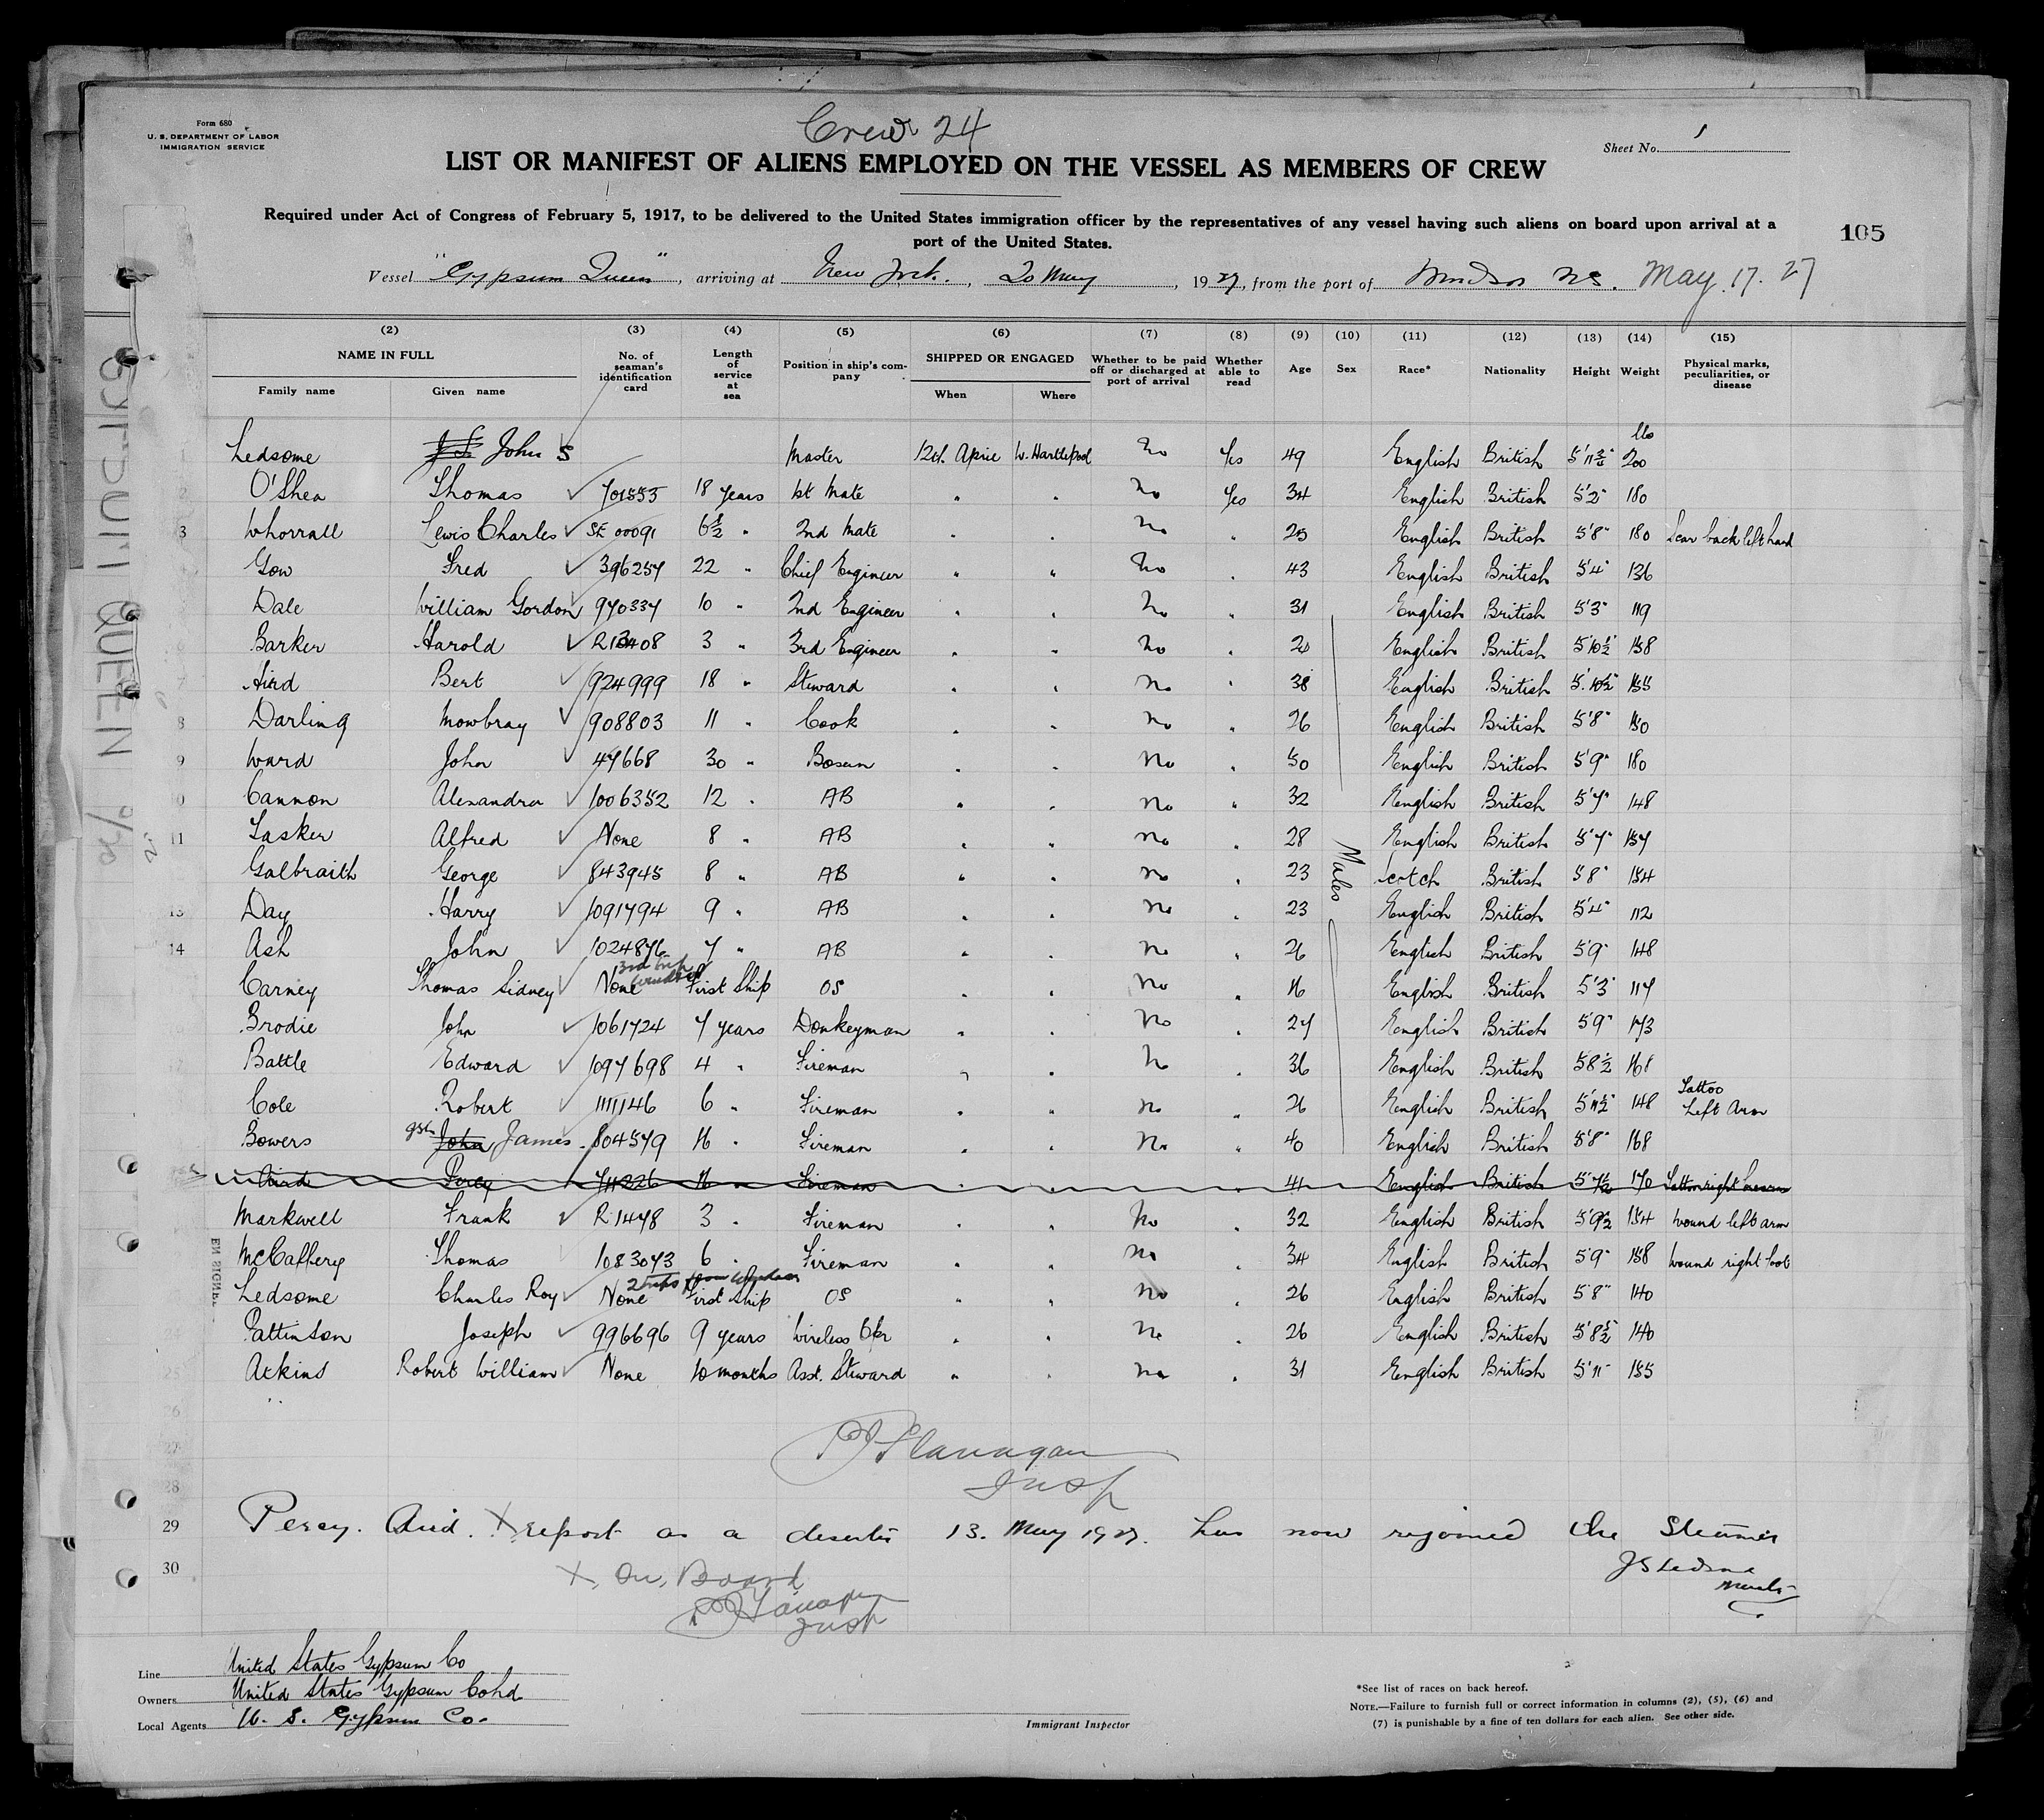 Form 680
U. S. DEPARTMENT OF LABOR
IMMIGRATION SERVICE
Crew 24
Sheet No. 1
LIST OR MANIFEST OF ALIENS EMPLOYED ON THE VESSEL AS MEMBERS OF CREW
Required under Act of Congress of February 5, 1917, to be delivered to the United States immigration officer by the representatives of any vessel having such aliens on board upon arrival at a
port of the United States.
105
Vessel "Gypsum Queen", arriving at New York, 20 May, 1927, from the port of Windsor NS. May. 17. 27
(2) (3) (4) (5) (6) (7) (8) (9) (10) (11) (12) (13) (14) (15)
NAME IN FULL No. of seaman's identification card Length of service at sea Position in ship's company SHIPPED OR ENGAGED Whether to be paid off or discharged at port of arrival Whether able to read Age Sex Race* Nationality Height Weight Physical marks, peculiarities, or disease
Family name Given name When Where
lbs
Ledsome J S John S Master 12th April W. Hartlepool No Yes 49 English British 5'11¾" 200
O'Shea Thomas 701553 18 years 1st Mate " " No Yes 34 English British 5'2" 180
3 Whorrall Lewis Charles SE 00091 6½ " 2nd Mate " " No " 25 English British 5'8" 180 Scar back left hand
Gow Fred 396257 22 " Chief Engineer " " No " 43 English British 5'4" 136
Dale William Gordon 970337 10 " 2nd Engineer " " No " 31 English British 5'3" 119
Barker Harold 3 " 3rd Engineer " " No " English British 5'10½ 158
7 Aird Bert 924999 18 " Steward " " No " 38 English British 5'.10½" 155
8 Darling Mowbray 908803 11 " Cook " " No " 26 English British 5'8" 150
9 Ward John 47668 30 " Bosun " " No " 50 English British 5'9" 180
10 Cannon Alexandra 1006352 12 " AB " " No " 32 English British 5'7" 148
11 Lasker Alfred None 8 " AB " " No " 28 English British 5'7" 157
Galbraith George 843945 8 " AB " " No " 23 Males Scotch British 5 8" 154
13 Day Harry 1091794 9 " AB " " No " 23 English British 5'4" 112
14 Ash John 1024876 7 " AB " " No " 26 English British 5'9" 148
3rd trip
Carney Thomas Sidney None First Ship OS " " No " 16 English British 5'3" 117
Brodie John 1061724 7 years Donkeyman " " No " 27 English British 5'9" 173
Battle Edward 1097698 4 " Fireman " " No " 36 English British 5 8½ 168
Cole Robert 1111146 6 " Fireman " " No " 26 English British 5'11½" 148 Tattoo Left Arm
Bowers John James 804579 16 " Fireman " " No " 40 English British 5'8" 168
Aird Percy 711226 16 " Fireman " " " 41 English British 5'7½ 170 Tattoo right forearm
Markwell Frank R 1478 3 " Fireman " " No " 32 English British 5'9½ 154 Wound left arm
McCaffery Thomas 1083073 6 " Fireman " " No " 34 English British 5'9" 158 Wound right foot
2 trips from Windsor
Ledsome Charles Roy None First Ship OS " " No " 26 English British 5'8" 140
Pattinson Joseph 996696 9 years Wireless Opr " " No " 26 English British 5'8½ 140
25 Atkins Robert William None 10 months Asst. Steward " " No " 31 English British 5'11" 155
26
27 P J Flanagan
28 Insp
29 Percy. Aird. X report as a deserter 13. May 1927. has now rejoined the Steamer
30 X. On, Board J S Ledsome
Master
P J Flanagan
Insp
Line United States Gypsum Co
Owners United States Gypsum Co Ltd
Local Agents U. S. Gypsum Co.
Immigrant Inspector
*See list of races on back hereof.
NOTE.—Failure to furnish full or correct information in columns (2), (5), (6) and
(7) is punishable by a fine of ten dollars for each alien. See other side.